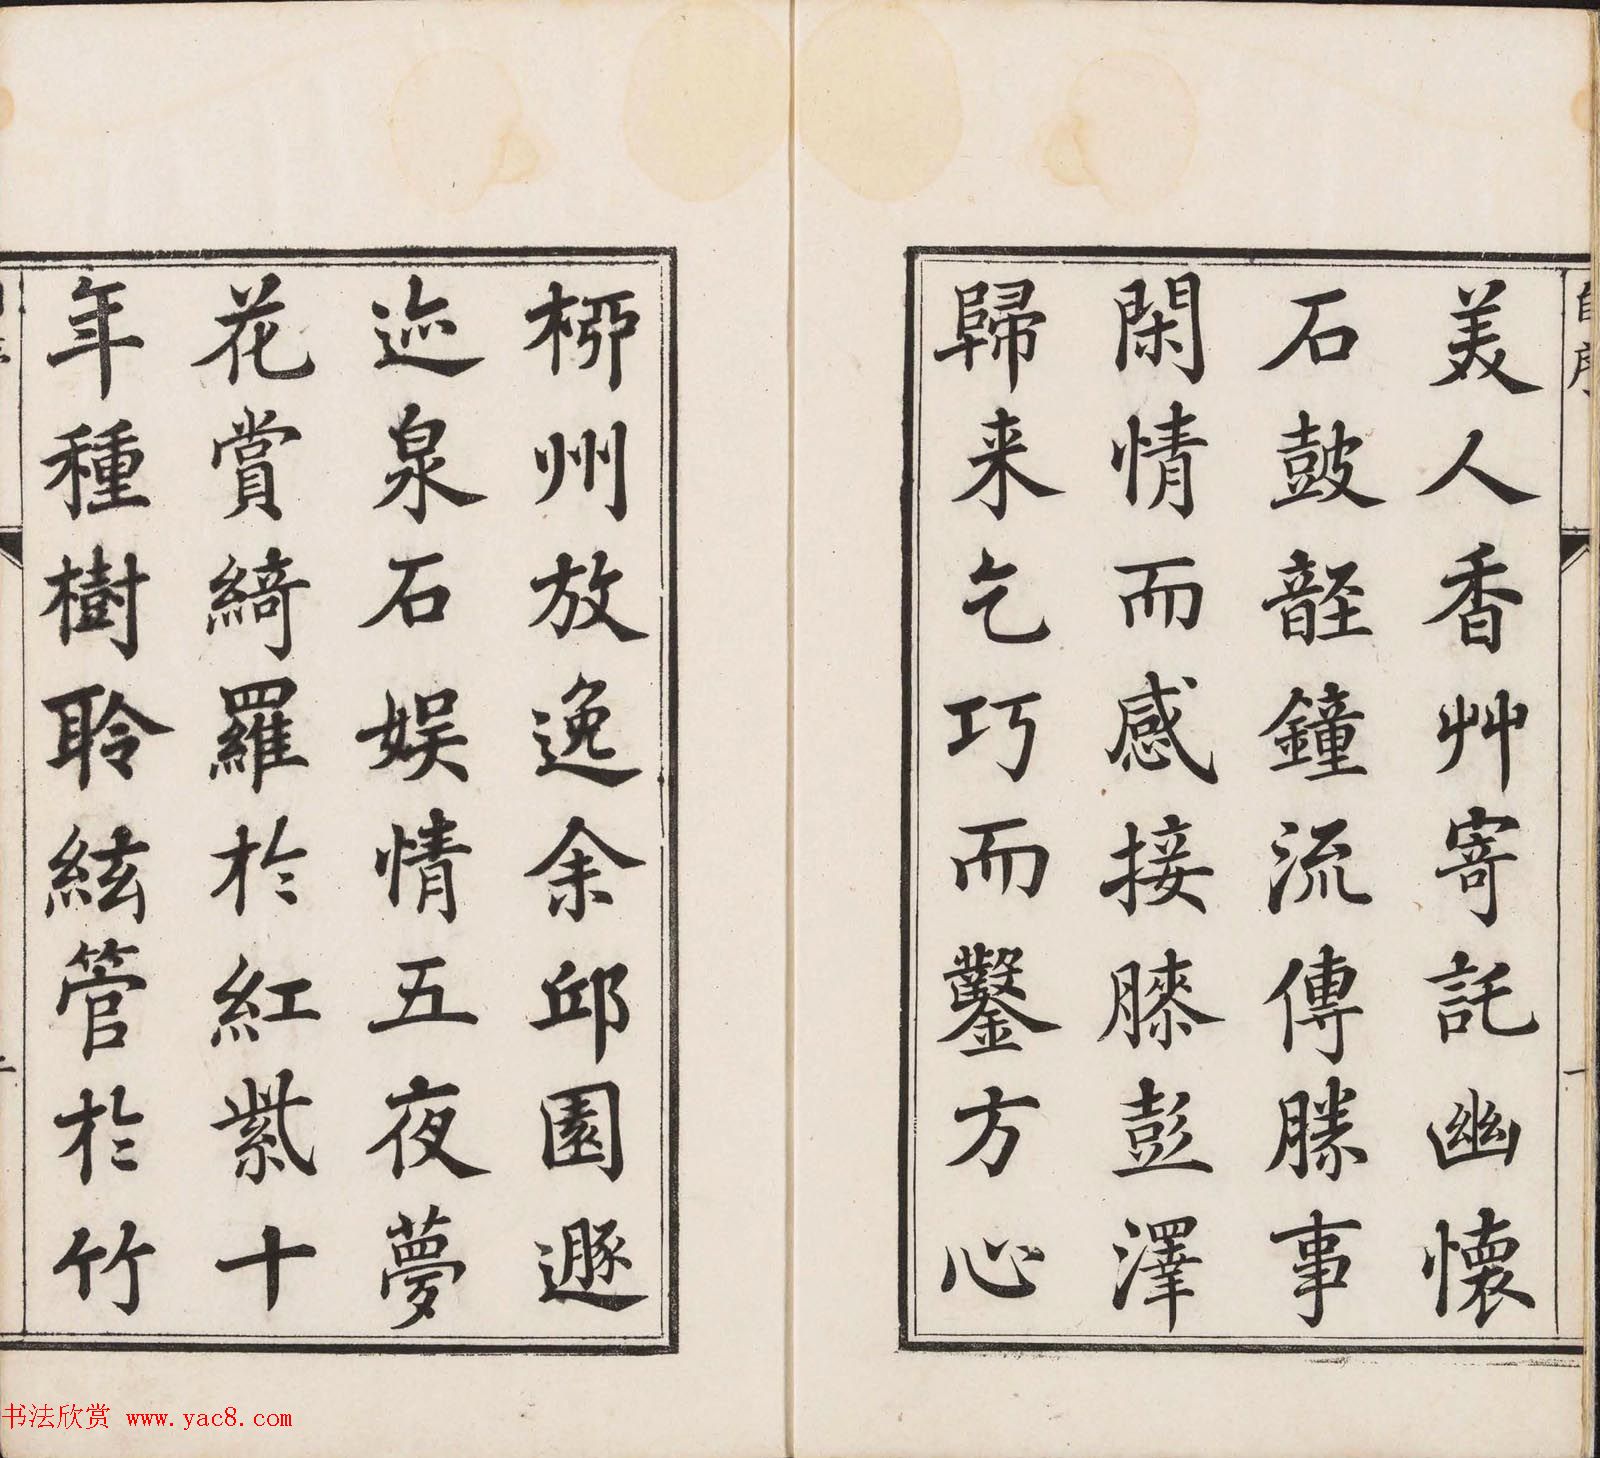 自序
一
美人香艸寄託幽懷
石皷䪫鐘流傳勝事
閑情而感接膝彭澤
歸来乞巧而鑿方心
栁州放逸余邱園遯
迹泉石娱情五夜夢
花賞綺羅於紅紫十
年種樹聆絃管於竹
书法欣赏 www.yac8.com